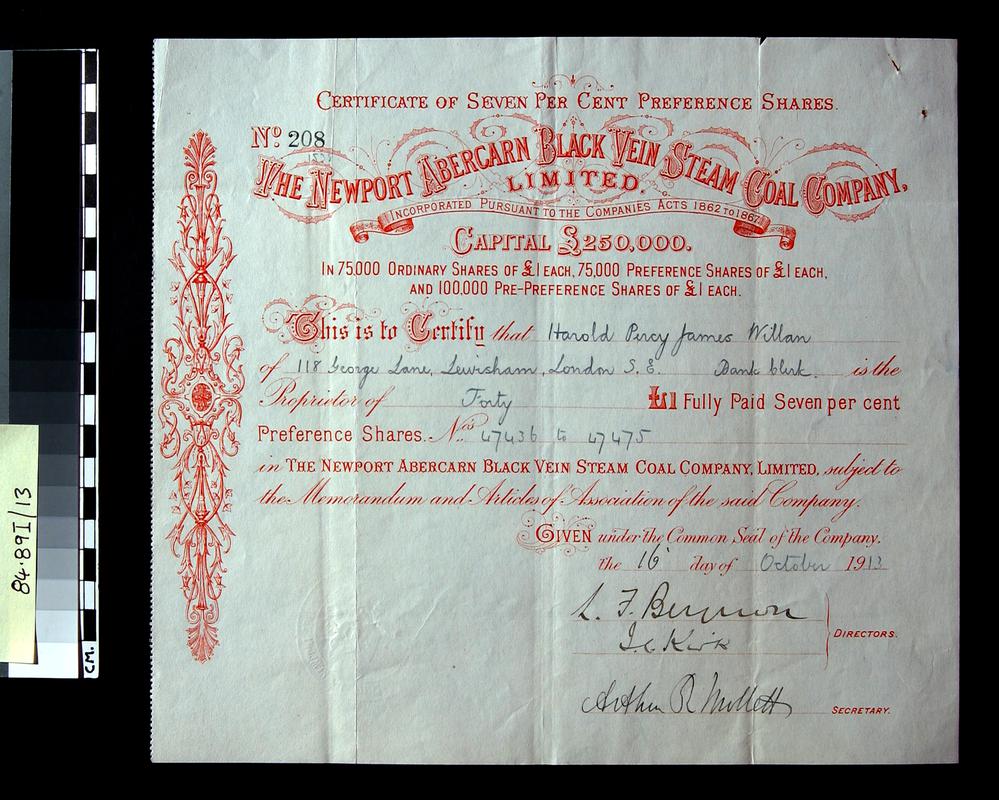 CERTIFICATE OF SEVEN PER CENT PREFERENCE SHARES.
No. 208
THE NEWPORT ABERCARN BLACK VEIN STEAM COAL COMPANY,
LIMITED.
INCORPORATED PURSUANT TO THE COMPANIES ACTS 1862 TO 1867
CAPITAL £250,000.
IN 75,000 ORDINARY SHARES OF £1 EACH, 75,000 PREFERENCE SHARES OF £1 EACH,
AND 100,000 PRE-PREFERENCE SHARES OF £1 EACH.
This is to Certify that Harold Percy James Willan
of 118 George Lane, Lewisham, London S.E. Bank Clerk. is the
Proprietor of Forty £1 Fully Paid Seven per cent
Preference Shares. Nos. 47436 to 47475
in THE NEWPORT ABERCARN BLACK VEIN STEAM COAL COMPANY, LIMITED, subject to
the Memorandum and Articles of Association of the said Company.
GIVEN under the Common Seal of the Company.
the 16 day of October 1913
L. F.
Kirk
DIRECTORS.
Arthur R Mullett
SECRETARY.
84.89I/13
CM.